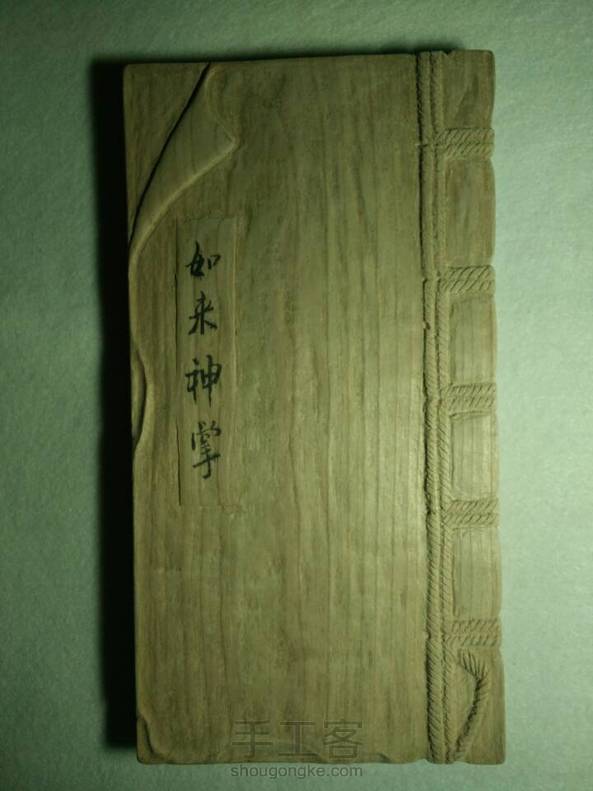 如来神掌
手工客
shougongke.com